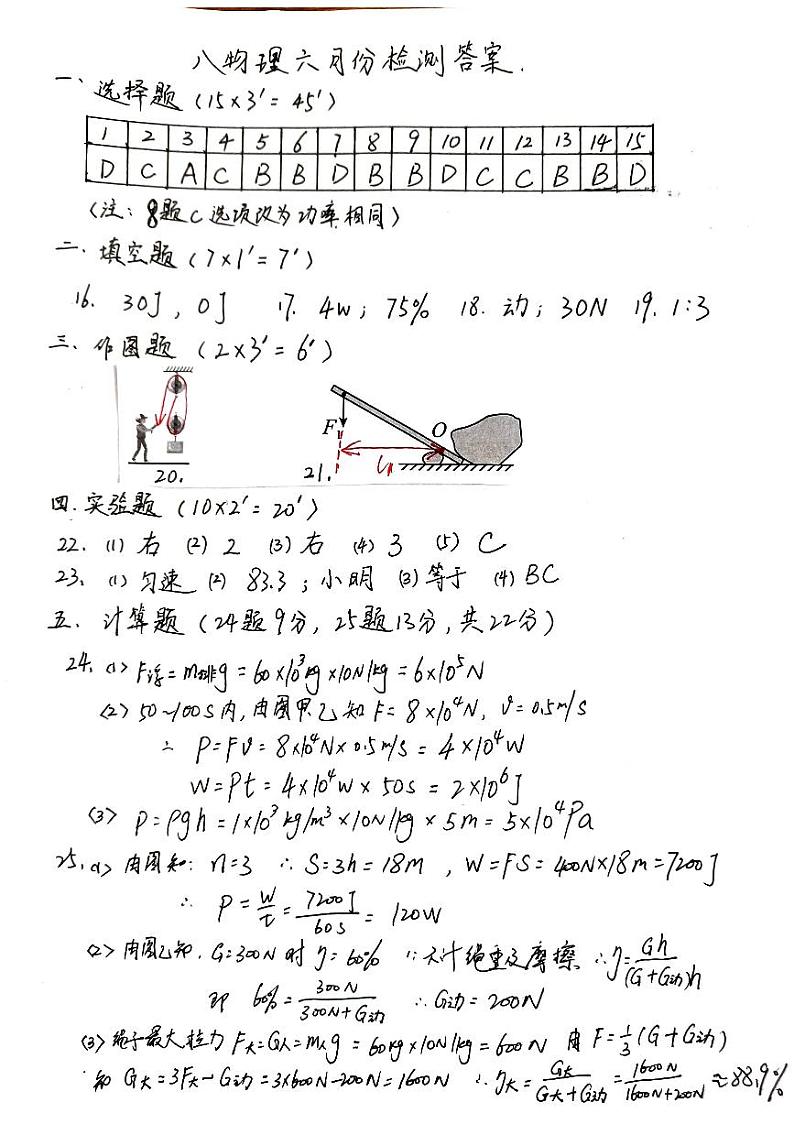 八物理六月份检测答案.
一、选择题(15×3′=45′)
1 2 3 4 5 6 7 8 9 10 11 12 13 14 15
D C A C B B D B B D C C B B D
(注:8题C选项改为功率相同)
二、填空题(7×1′=7′)
16. 30J,0J 17. 4W;75% 18. 动;30N 19. 1:3
三、作图题(2×3′=6′)
F O
20. 21.
四.实验题(10×2′=20′)
22. (1)右 (2)2 (3)右 (4)3 (5)C
23. (1)匀速 (2)83.3;小明 (3)等于 (4)BC
五、计算题(24题9分,25题13分,共22分)
24. (1) F浮=m排g=60×10³kg×10N/kg=6×10⁵N
(2) 50~100s内,由图甲乙知F=8×10⁴N, v=0.5m/s
∴ P=Fv=8×10⁴N×0.5m/s=4×10⁴W
W=Pt=4×10⁴W×50s=2×10⁶J
(3) P=ρgh=1×10³kg/m³×10N/kg×5m=5×10⁴Pa
25. (1) 由图知:n=3 ∴S=3h=18m,W=FS=400N×18m=7200J
∴ P=W/t=7200J/60s=120W
(2) 由图乙知,G=300N时η=60% ∵不计绳重及摩擦 ∴η=Gh/(G+G动)h
即 60%=300N/300N+G动 ∴G动=200N
(3) 绳子最大拉力F大=G人=m人g=60kg×10N/kg=600N 由F=1/3(G+G动)
知 G大=3F大-G动=3×600N-200N=1600N ∴η大=G大/G大+G动=1600N/1600N+200N≈88.9%